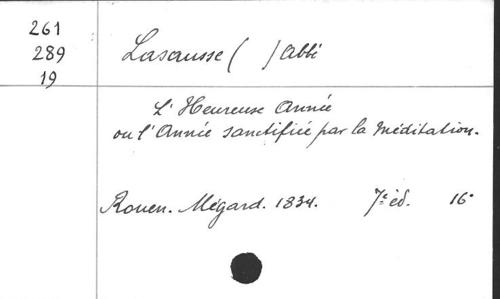 261
289
19
Lasausse ( ) Abbé
L'Heureuse Année
ou l'Année sanctifiée par la Méditation.
Rouen. Mégard. 1834. 7e éd. 16°